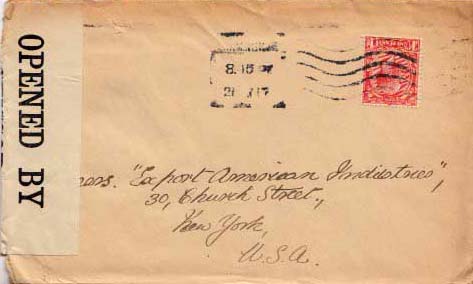 OPENED BY
8.15 PM
"Export American Industries",
30, Church Street.,
New York,
U.S.A.